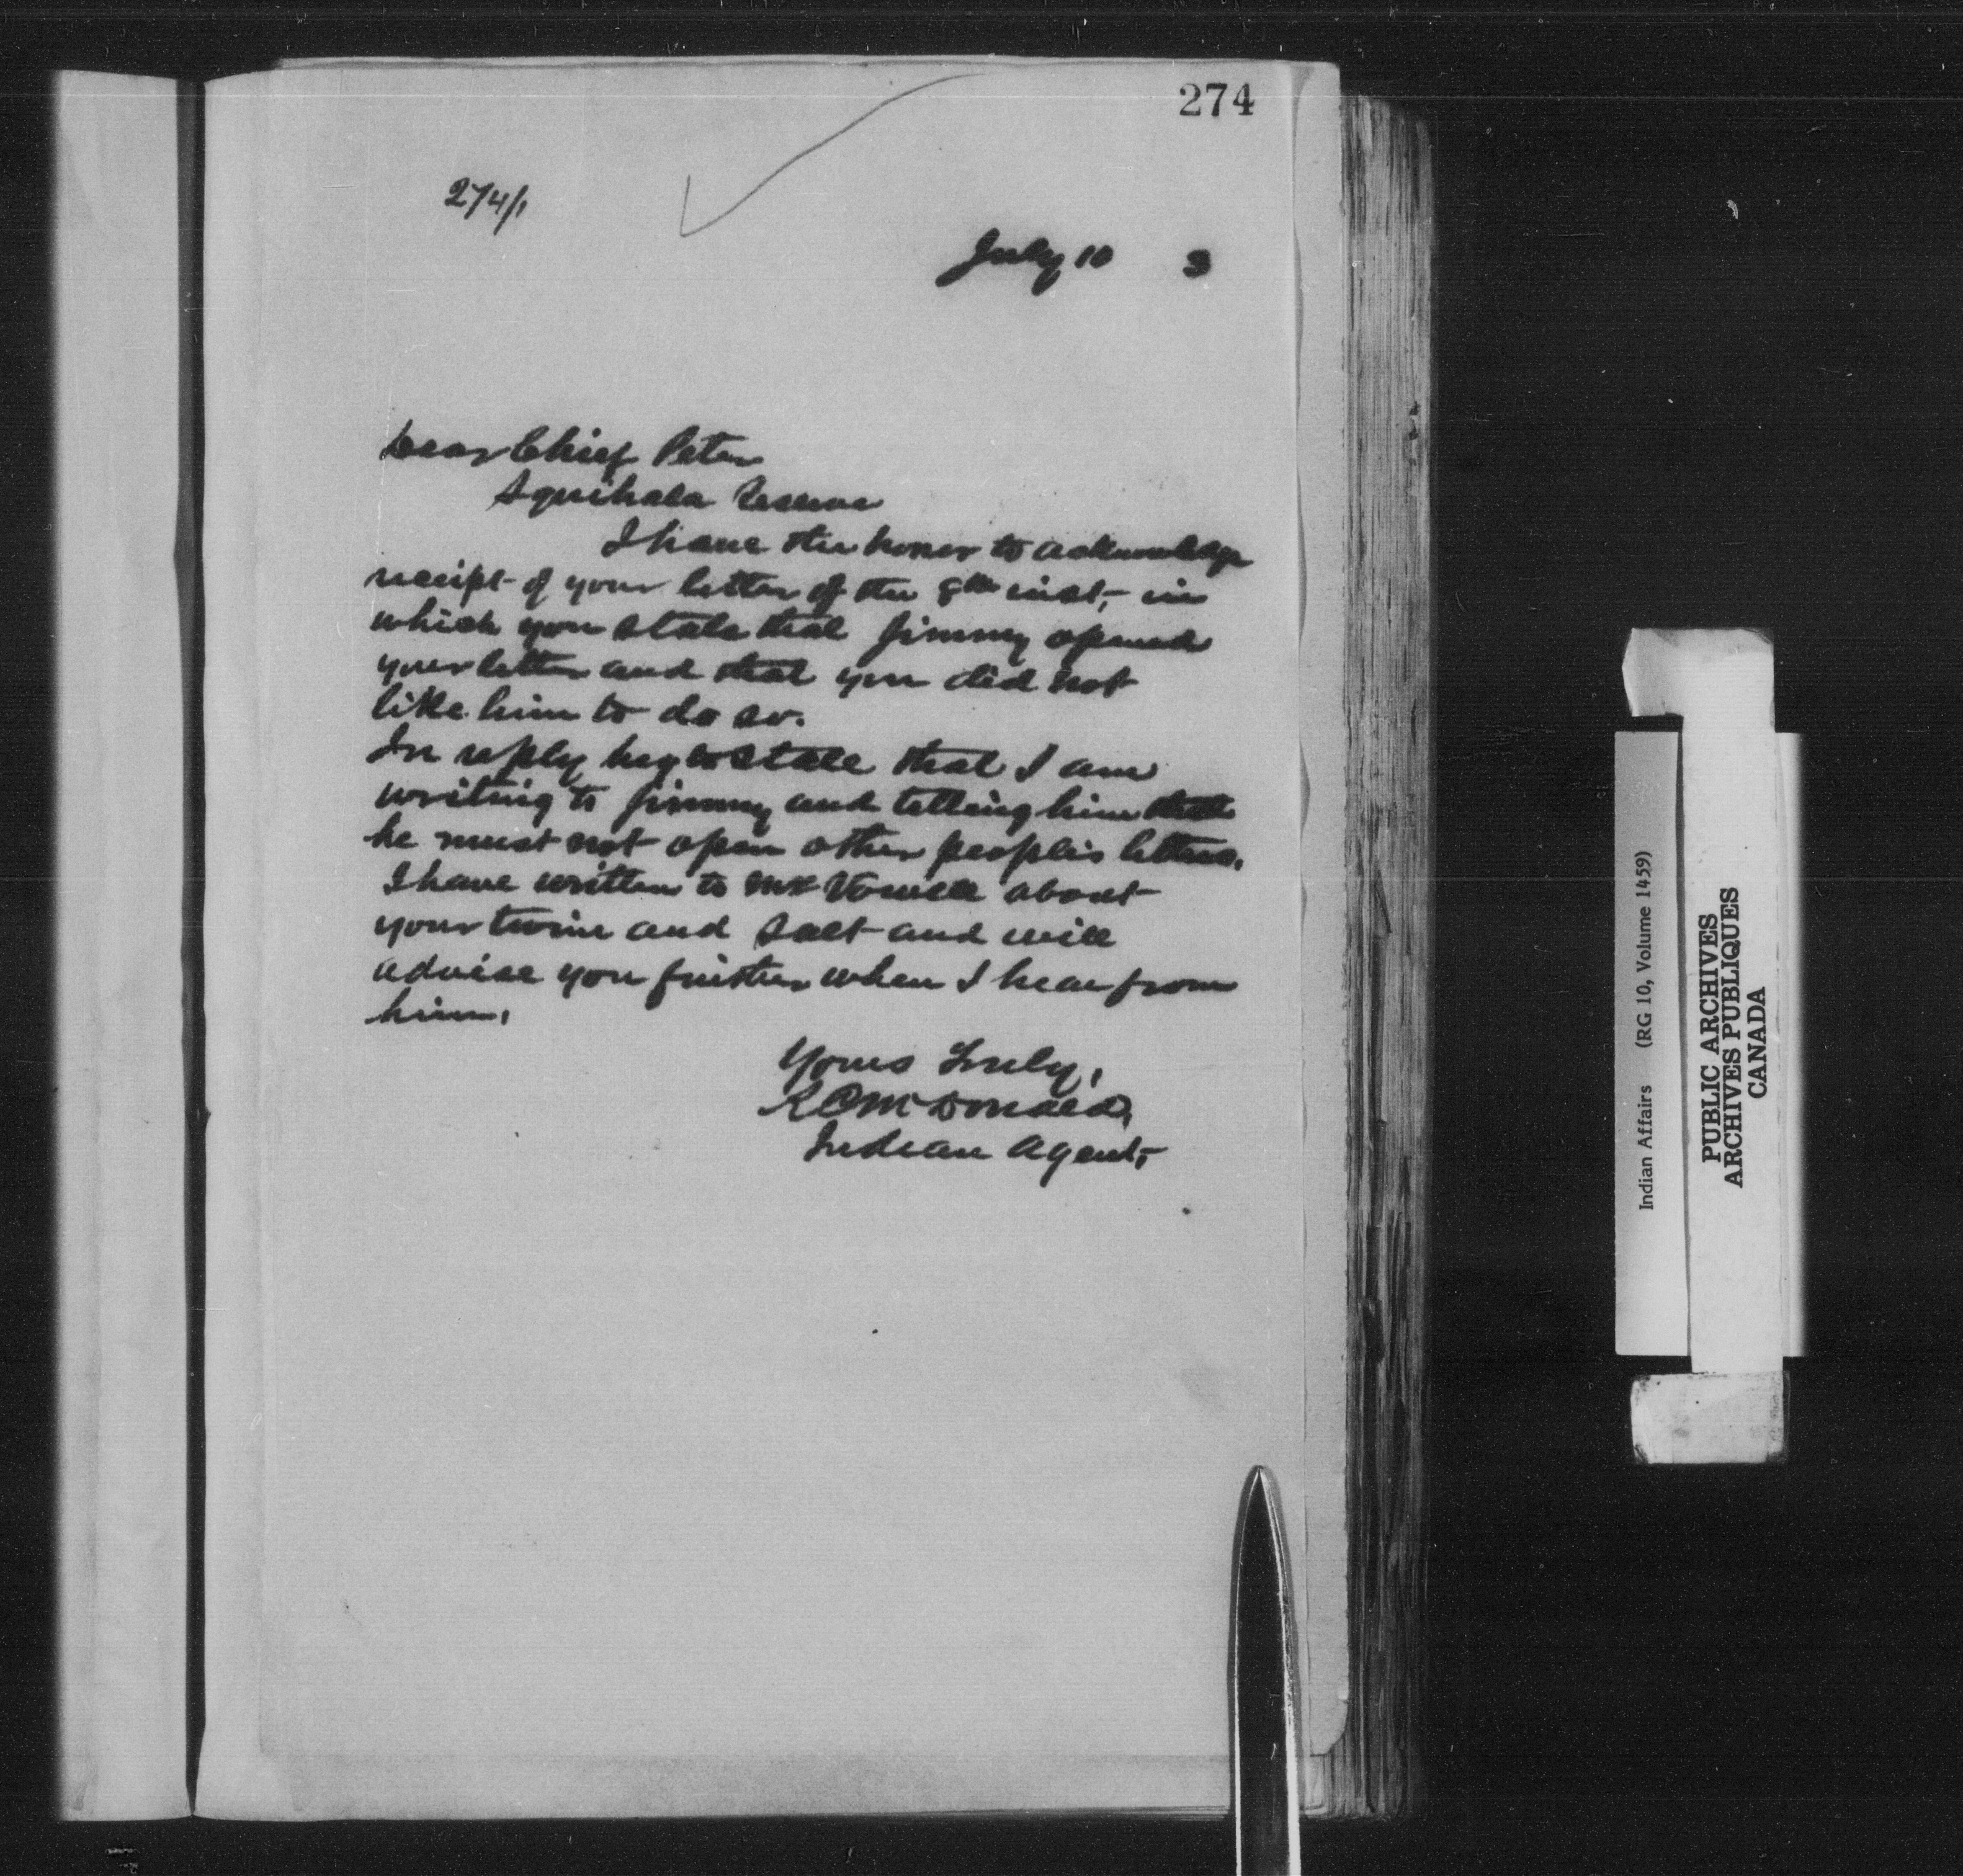 274
274/1
July 10 3
Dear Chief Peter
Squihala Reserve
I have the honor to acknowledge
receipt of your letter of the 8th inst, in
which you state that Jimmy opened
your letter and that you did not
like him to do so.
In reply beg to state that I am
writing to Jimmy and telling him that
he must not open other people's letters.
I have written to Mr Vowell about
your twine and salt and will
advise you further when I hear from
him.
Yours truly,
R C McDonald,
Indian Agent,
Indian Affairs (RG 10, Volume 1459)
PUBLIC ARCHIVES
ARCHIVES PUBLIQUES
CANADA